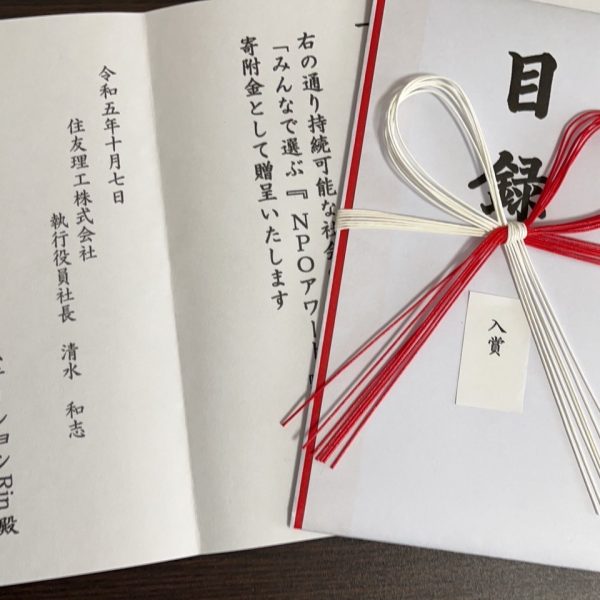 目録
入賞
右の通り持続可能な社会
「みんなで選ぶ『NPOアワード
寄附金として贈呈いたします
令和五年十月七日
住友理工株式会社
執行役員社長 清水 和志
ションRin 殿